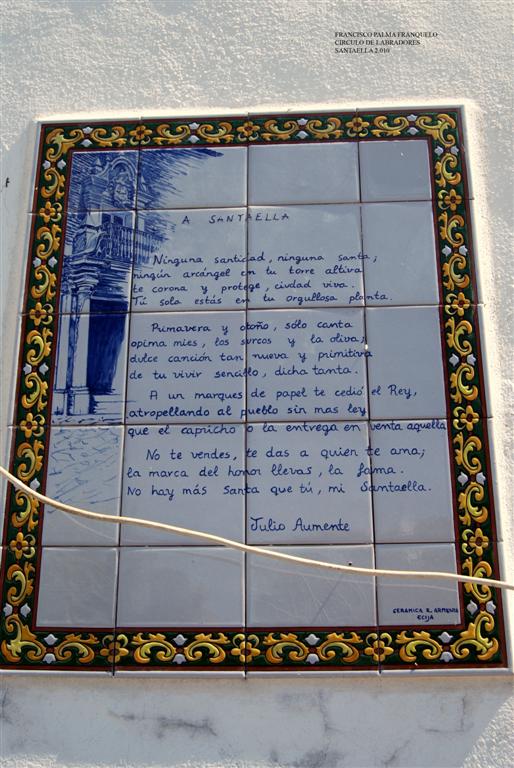 FRANCISCO PALMA FRANQUELO
CIRCULO DE LABRADORES
SANTAELLA 2.010
A SANTAELLA
Ninguna santidad, ninguna santa;
ningún arcángel en tu torre altiva
te corona y protege, ciudad viva.
Tú sola estás en tu orgullosa planta.
Primavera y otoño, sólo canta
opima mies, los surcos y la oliva;
dulce canción tan nueva y primitiva
de tu vivir sencillo, dicha tanta.
A un marques de papel te cedió el Rey,
atropellando al pueblo sin mas ley
que el capricho o la entrega en venta aquella
No te vendes, te das a quien te ama;
la marca del honor llevas, la fama.
No hay más Santa que tú, mi Santaella.
Julio Aumente
CERAMICA E. ARMENTA
ECIJA